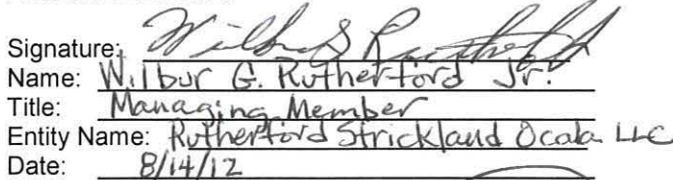 Signature: Wilbur G Rutherford
Name: Wilbur G. Rutherford Jr.
Title: Managing Member
Entity Name: Rutherford Strickland Ocala LLC
Date: 8/14/12